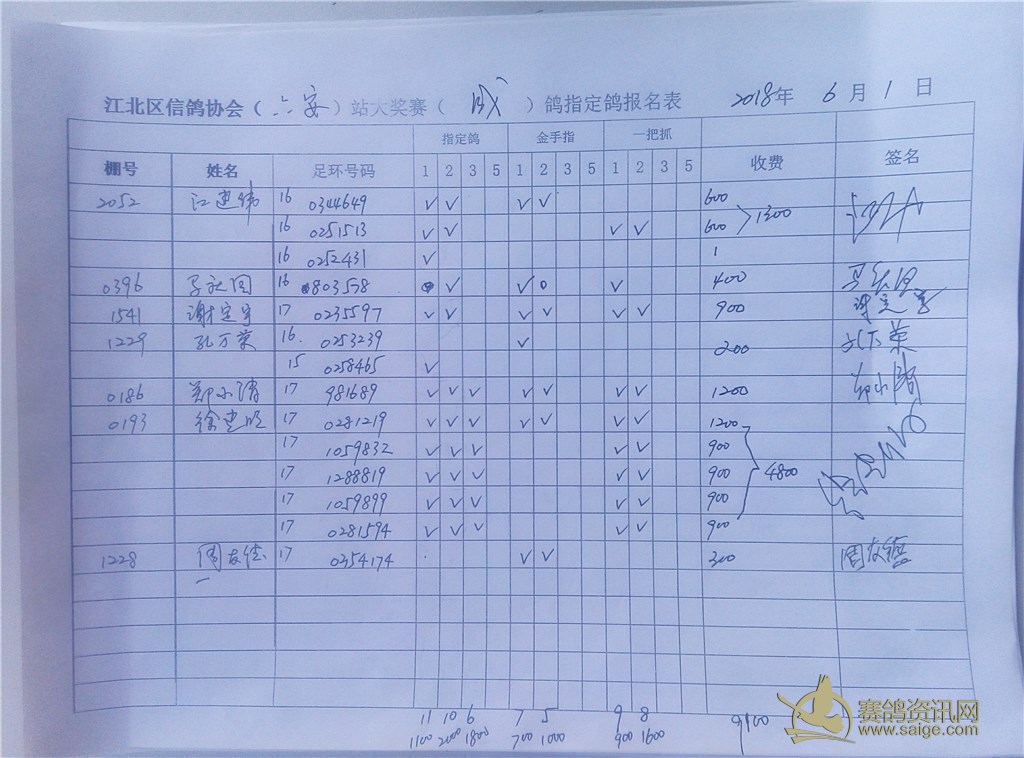 江北区信鸽协会（六安）站大奖赛（成）鸽指定鸽报名表 2018年 6月1日
指定鸽 金手指 一把抓
棚号 姓名 足环号码 1 2 3 5 1 2 3 5 1 2 3 5 收费 签名
2052 江建伟 16 0344649 ✓ ✓ ✓ ✓ 600
16 0251513 ✓ ✓ ✓ ✓ 600 1300
16 0252431 ✓ 1
0396 16 803578 ✓ ✓ ✓ 400
1541 谢定宇 17 0235597 ✓ ✓ ✓ ✓ ✓ ✓ 900 谢定宇
1229 孔万荣 16. 0253239 ✓ 200 孔万荣
15 0258465 ✓
0186 郑小清 17 981689 ✓ ✓ ✓ ✓ ✓ ✓ ✓ 1200 郑小清
0193 徐建明 17 0281219 ✓ ✓ ✓ ✓ ✓ ✓ ✓ 1200
17 1059832 ✓ ✓ ✓ ✓ ✓ 900
17 1288819 ✓ ✓ ✓ ✓ ✓ 900 4800
17 1059899 ✓ ✓ ✓ ✓ ✓ 900
17 0281594 ✓ ✓ ✓ ✓ ✓ 900
1228 周友德 17 0354174 ✓ ✓ 300 周友德
11 10 6 7 5 9 8
1100 2000 1800 700 1000 900 1600 9100
赛鸽资讯网
www.saige.com